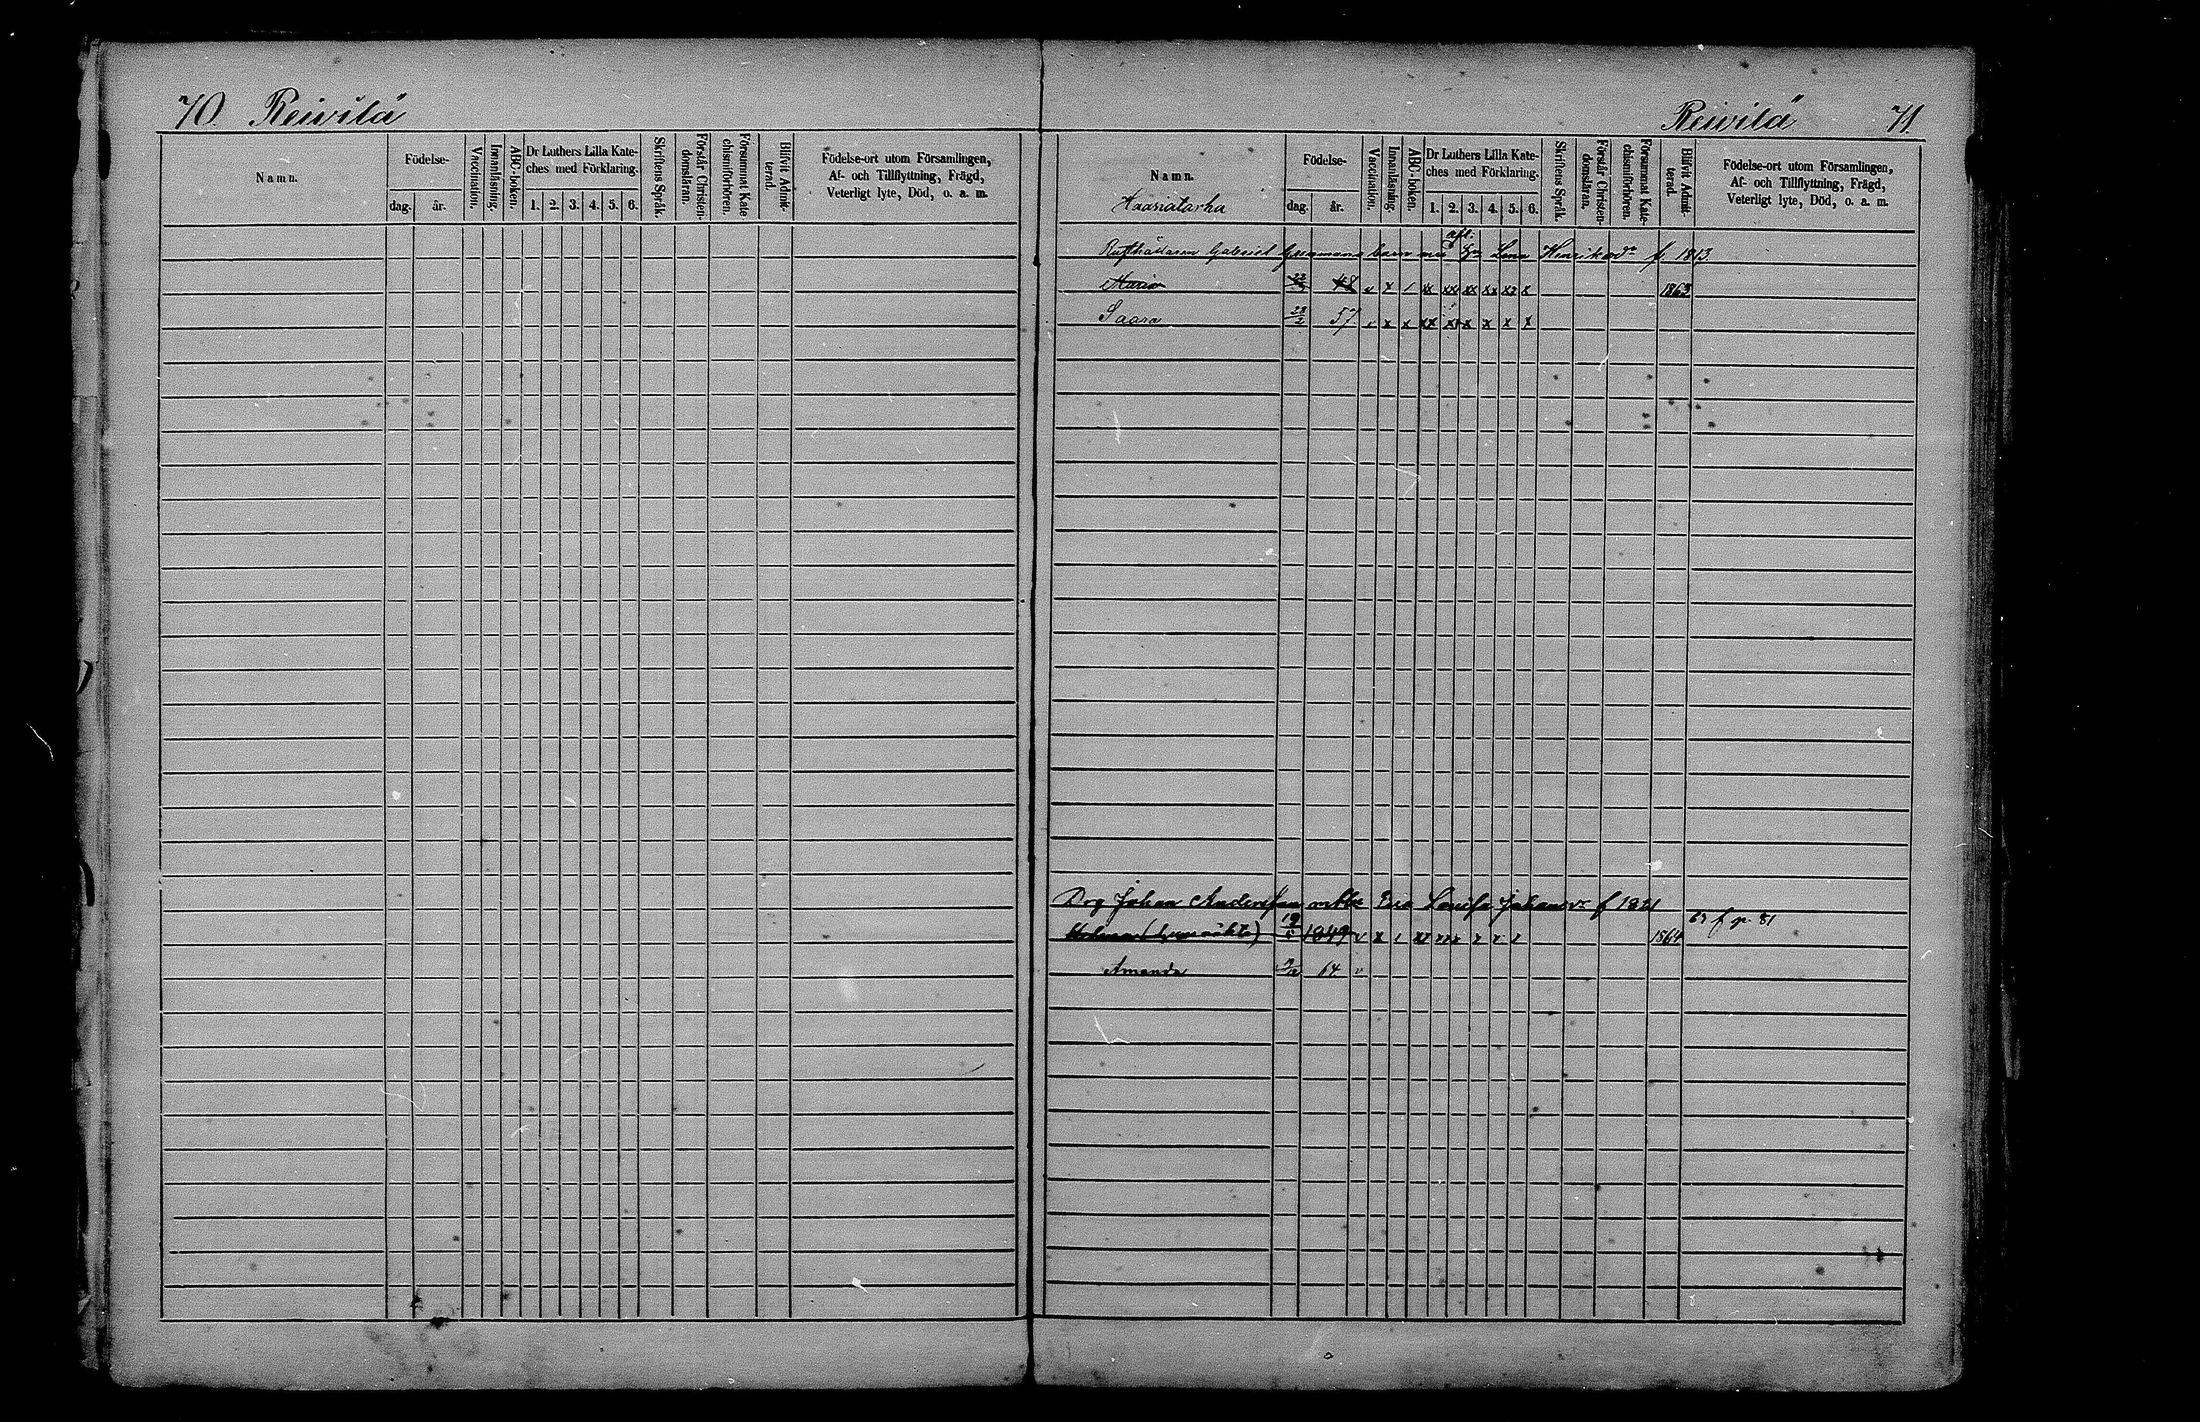 70. Reivilä
Namn.
Födelse-
dag.
år.
Vaccination.
Innanläsning.
ABC-boken.
Dr Luthers Lilla Kate-
ches med Förklaring.
1. 2. 3. 4. 5. 6.
Skriftens Språk.
Förstår Christen-
domsläran.
Försummat Kate-
chismiförhören.
Blifvit Admit-
terad.
Födelse-ort utom Församlingen,
Af- och Tillflyttning, Frägd,
Veterligt lyte, Död, o. a. m.
Reivilä 71.
Namn.
Födelse-
dag.
år.
Vaccination.
Innanläsning.
ABC-boken.
Dr Luthers Lilla Kate-
ches med Förklaring.
1. 2. 3. 4. 5. 6.
Skriftens Språk.
Förstår Christen-
domsläran.
Försummat Kate-
chismiförhören.
Blifvit Admit-
terad.
Födelse-ort utom Församlingen,
Af- och Tillflyttning, Frägd,
Veterligt lyte, Död, o. a. m.
afl.
Rusthållaren Gabriel barn med Lena Henriksdr f. 1813
Maria 48 v x / xx xx xx xx xx x 1863
Saara 28/2 57 v x x xx xx x x x x
Drg Johan Andersson Eva Lovisa Johansdr f 1821
1849 v x 1864 67 f p. 81
Amanda 64 v